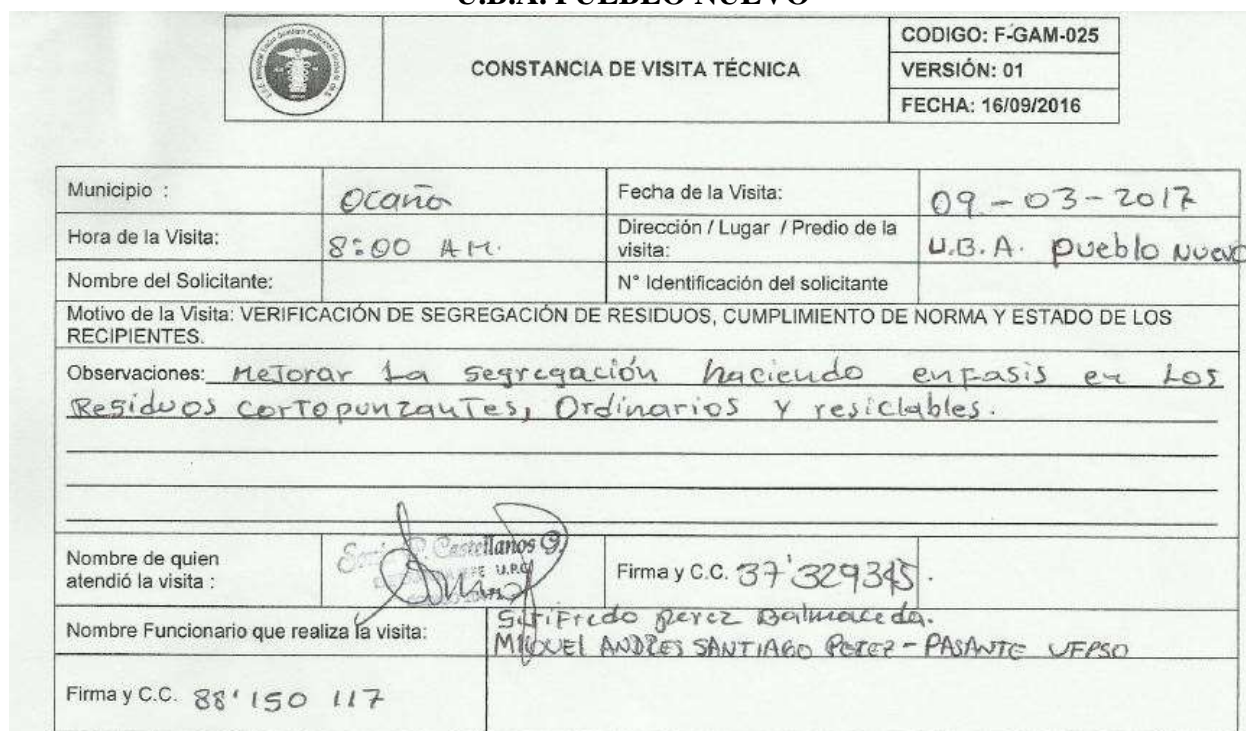 U.B.A. PUEBLO NUEVO
CONSTANCIA DE VISITA TÉCNICA
CODIGO: F-GAM-025
VERSIÓN: 01
FECHA: 16/09/2016
Municipio : Ocaña
Fecha de la Visita: 09-03-2017
Hora de la Visita: 8:00 AM.
Dirección / Lugar / Predio de la visita: U.B.A. pueblo Nuevo
Nombre del Solicitante:
N° Identificación del solicitante
Motivo de la Visita: VERIFICACIÓN DE SEGREGACIÓN DE RESIDUOS, CUMPLIMIENTO DE NORMA Y ESTADO DE LOS
RECIPIENTES.
Observaciones: MeJorar La segregación haciendo enfasis en Los
Residuos cortopunzantes, Ordinarios y resiclables.
Nombre de quien
atendió la visita :
Castellanos G.
Firma y C.C. 37'329345.
Nombre Funcionario que realiza la visita:
Sififredo perez Balmaceda.
MIGUEL ANDRES SANTIAGO PEREZ - PASANTE UFPSO
Firma y C.C. 88'150 117